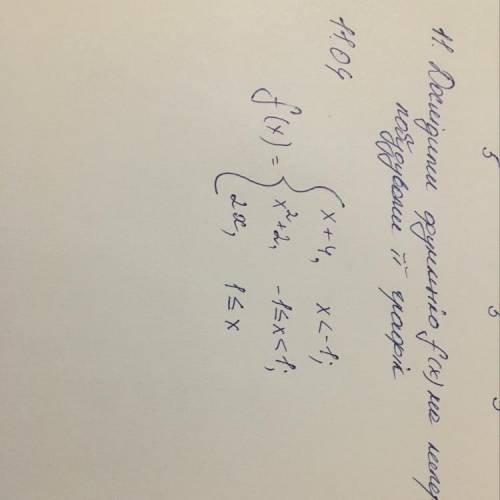 11. Дослідити функцію f(x) на непер
побудувати її графік
11.04
f(x) = { x+4, x<-1;
x²+2, -1≤x<1;
2x, 1≤x